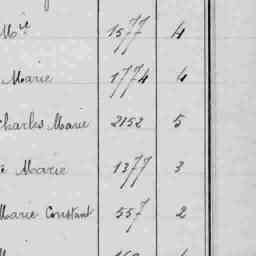 Mie 1577 4
Marie 1774 4
Charles Marie 2152 5
Marie 1377 3
Marie Constant 557 2